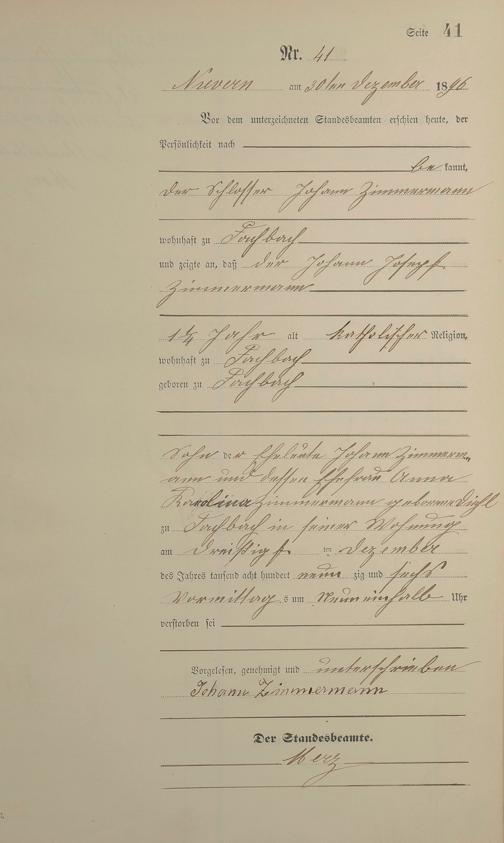 Seite 41
Nr. 41
Nievern am 30ten Dezember 1896
Vor dem unterzeichneten Standesbeamten erschien heute, der
Persönlichkeit nach
bekannt,
der Schlosser Johann Zimmermann
wohnhaft zu Fachbach
und zeigte an, daß der Johann Josef
Zimmermann
1 1/4 Jahr alt katholischer Religion,
wohnhaft zu Fachbach
geboren zu Fachbach
Sohn der Eheleute Johann Zimmerm„
ann und dessen Ehefrau Anna
Karolina Zimmermann geborene Diehl
zu Fachbach in seiner Wohnung
am dreißigst ten Dezember
des Jahres tausend acht hundert neun zig und sechs
Vormittags um Neuneinhalb Uhr
verstorben sei
Vorgelesen, genehmigt und unterschrieben
Johann Zimmermann
Der Standesbeamte.
Merz